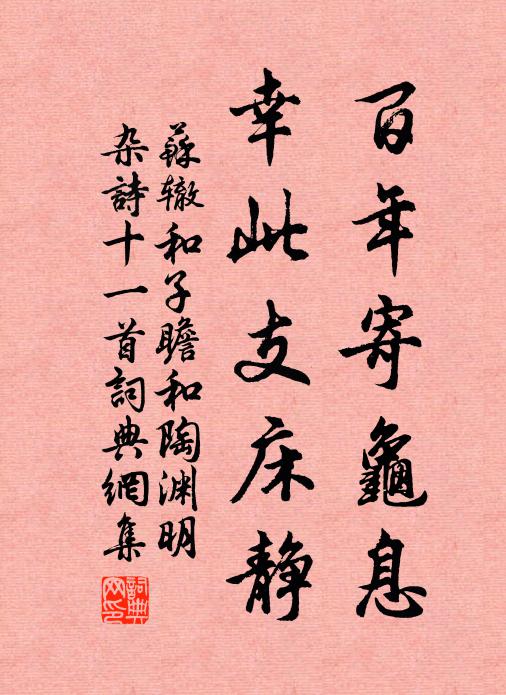 百年寄龜息
幸此支床静
蘇辙和子瞻和陶渊明
杂詩十一首詞典網集
詞典
网印